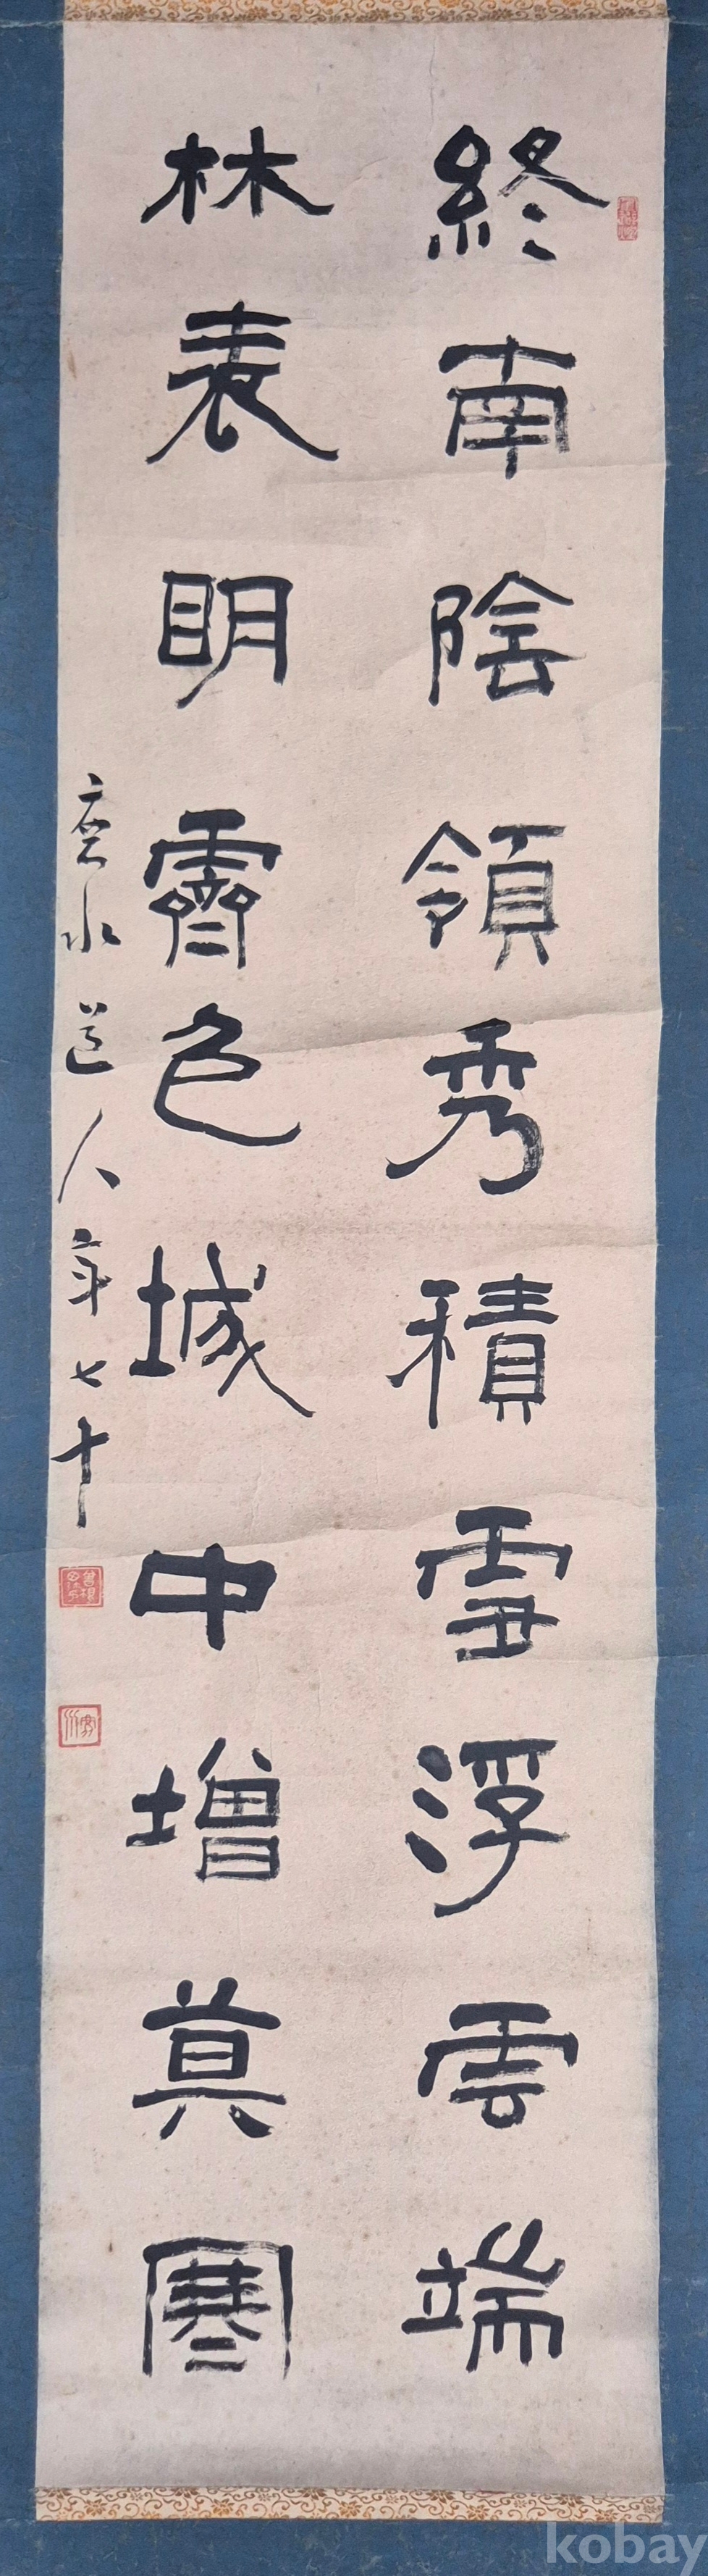 終南陰領秀積雪浮雲端
林表明霽色城中增莫寒
水道人年七十
kobay